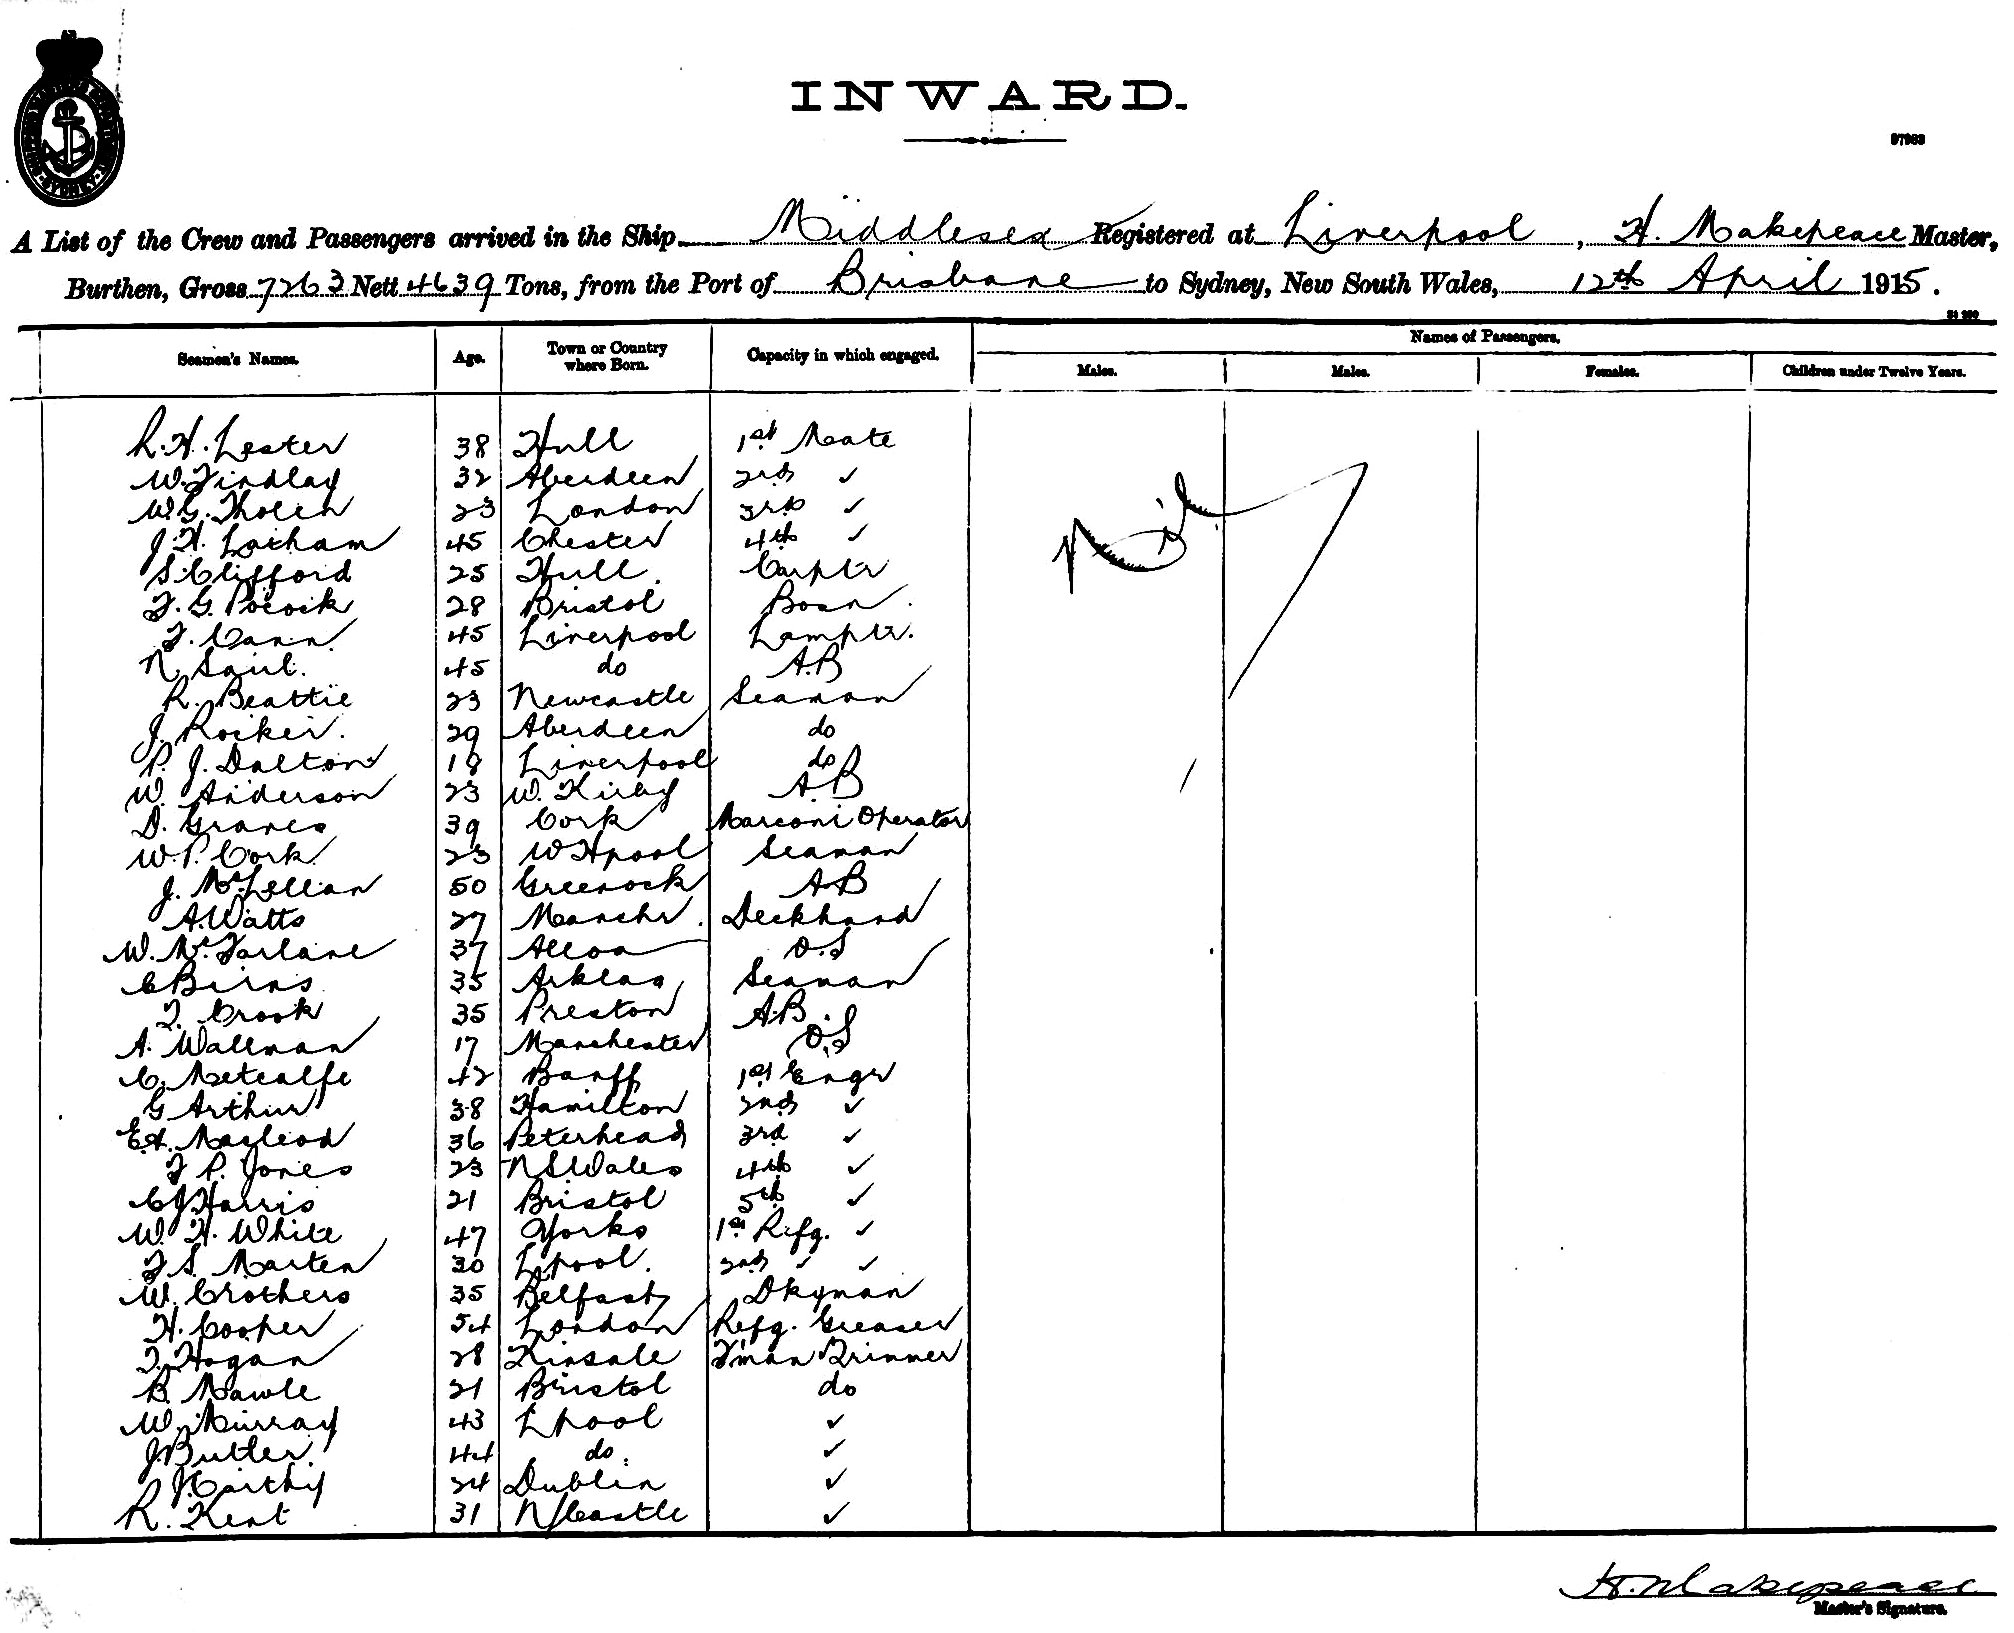 INWARD.
57963
A List of the Crew and Passengers arrived in the Ship Middlesex Registered at Liverpool, H. Makepeace Master,
Burthen, Gross 7263 Nett 4639 Tons, from the Port of Brisbane to Sydney, New South Wales, 12th April 1915.
Names of Passengers.
Seamen's Names. Age. Town or Country where Born. Capacity in which engaged. Males. Males. Females. Children under Twelve Years.
R. H. Lester 38 Hull 1st Mate
W. Findlay 32 Aberdeen 2nd ✓
W. G. Tholen 23 London 3rd ✓
J. H. Latham 45 Chester 4th ✓
S. Clifford 25 Hull. Carptr
F. G. Pocock 28 Bristol Bosn.
F. Cann. 45 Liverpool Lamptr.
N. Saul. 45 do A.B
R. Beattie 23 Newcastle Seaman
J. Rocker. 29 Aberdeen do
P. J. Dalton 18 Liverpool do
W. Anderson 23 W. Kirby A.B
D. Graves 39 Cork Marconi Operator
W. P. Cork 23 W Hpool Seaman
J. McLellan 50 Greenock AB
A. Watts 27 Manchr. Deckhand
W. McFarlane 37 Alloa O.S
C Birns 35 Arklow Seaman
T. Crook 35 Preston A.B.
A. Wallman 17 Manchester O.S
C. Metcalfe 42 Banff 1st Engr
G Arthur 38 Hamilton 2nd ✓
E.A. Macleod 36 Peterhead 3rd ✓
F P. Jones 23 N S Wales 4th ✓
C J Harris 21 Bristol 5th ✓
W. H. White 47 Yorks 1st Refg. ✓
F S. Marten 30 Lpool. 2nd ✓ ✓
W. Crothers 35 Belfast Dkyman
H. Cooper 54 London Refg. Greaser
T. Hogan 28 Kinsale F'man Trimmer
B. Mawle 21 Bristol do
W. Murray 43 Lpool ✓
J. Butler. 44 do. ✓
J Carthy 24 Dublin ✓
R. Kent 31 N/Castle ✓
Nil
H. Makepeace
Master's Signature.